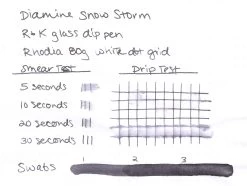 Diamine Snow Storm
R+K glass dip pen
Rhodia 80g white dot grid
Smear Test Drip Test
5 seconds
10 seconds
20 seconds
30 seconds
Swabs 1 2 3